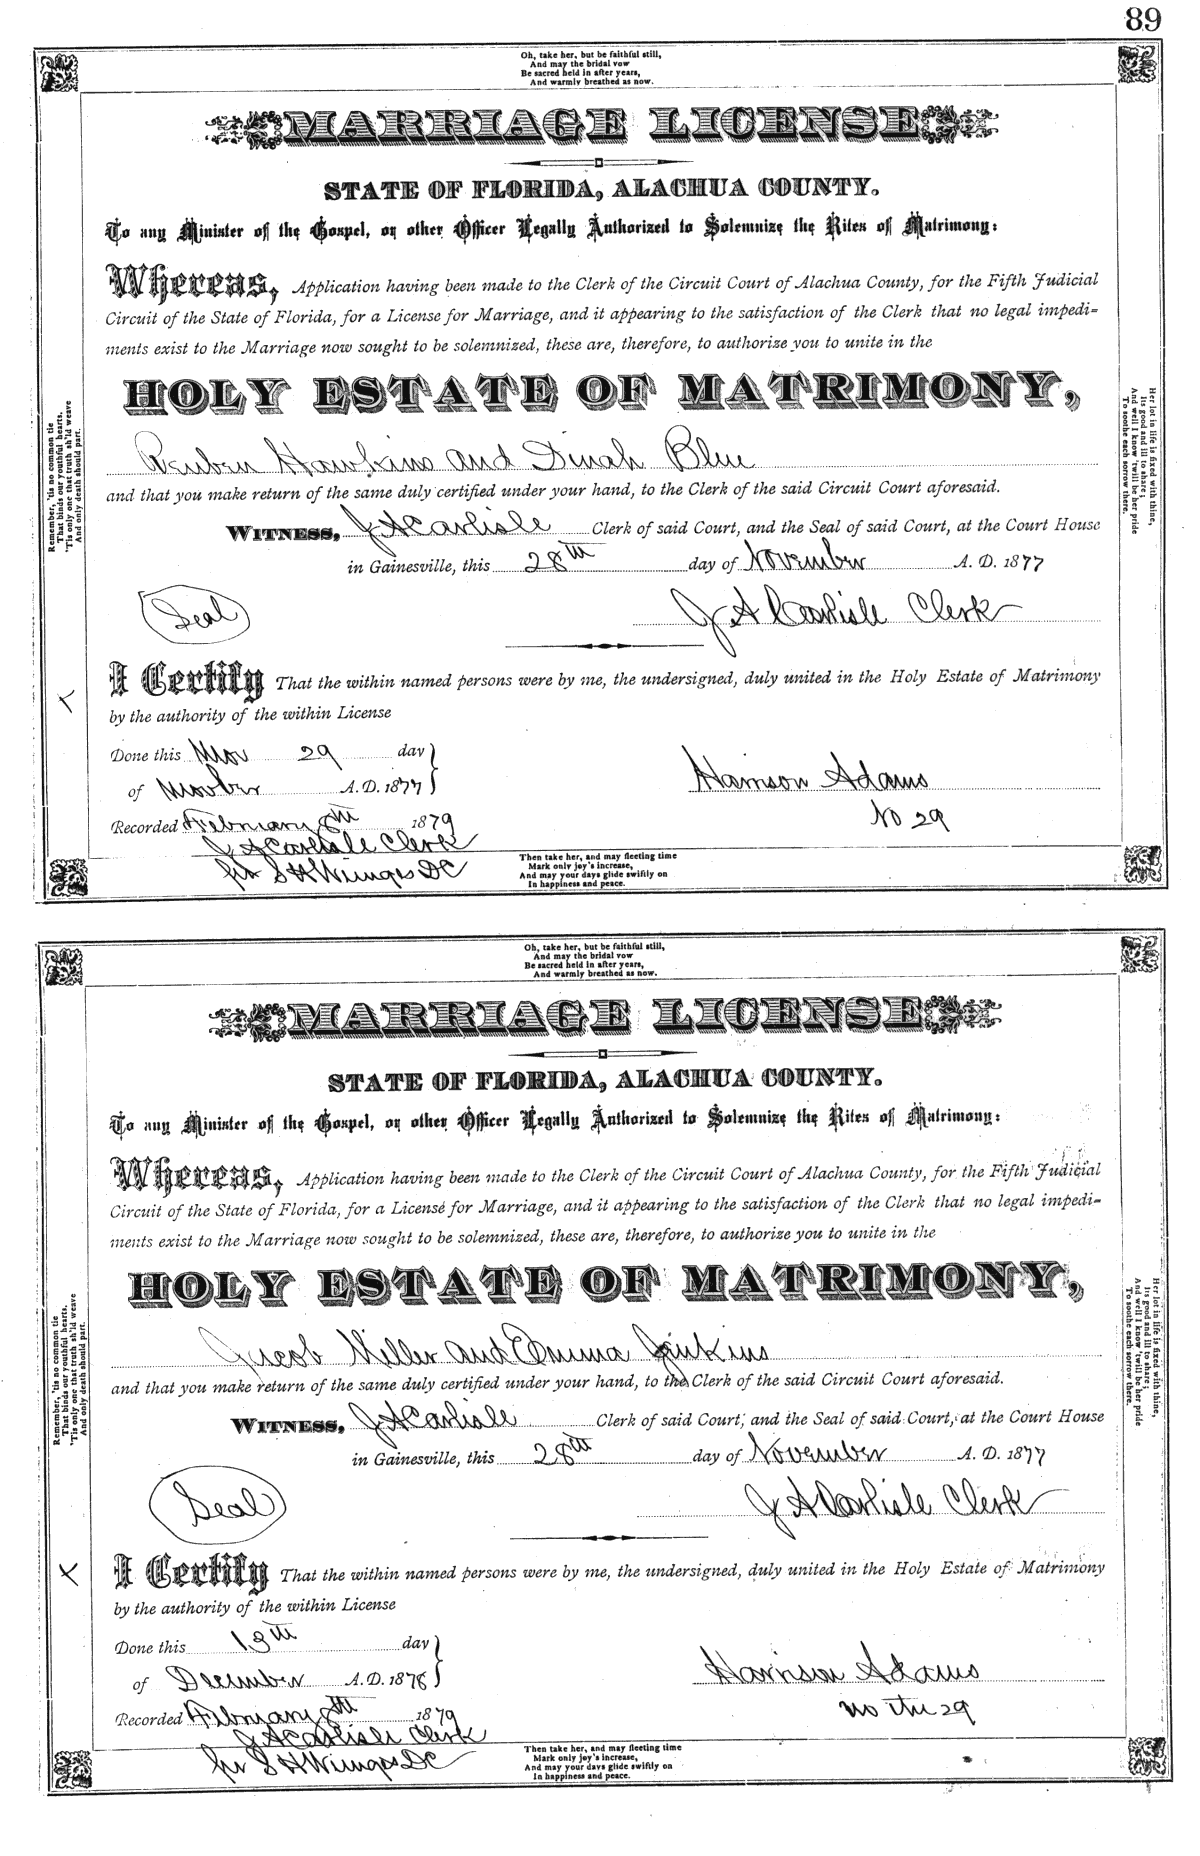 89
Oh, take her, but be faithful still,
And may the bridal vow
Be sacred held in after years,
And warmly breathed as now.
MARRIAGE LICENSE
STATE OF FLORIDA, ALACHUA COUNTY.
To any Minister of the Gospel, or other Officer Legally Authorized to Solemnize the Rites of Matrimony:
Whereas, Application having been made to the Clerk of the Circuit Court of Alachua County, for the Fifth Judicial
Circuit of the State of Florida, for a License for Marriage, and it appearing to the satisfaction of the Clerk that no legal impedi-
ments exist to the Marriage now sought to be solemnized, these are, therefore, to authorize you to unite in the
HOLY ESTATE OF MATRIMONY,
Reuben Hawkins and Dinah Blue
and that you make return of the same duly certified under your hand, to the Clerk of the said Circuit Court aforesaid.
WITNESS, J A Carlisle Clerk of said Court, and the Seal of said Court, at the Court House
in Gainesville, this 28th day of November A. D. 1877
Seal
J A Carlisle Clerk
I Certify That the within named persons were by me, the undersigned, duly united in the Holy Estate of Matrimony
by the authority of the within License
Done this Nov 29 day
of A. D. 1877
Harrison Adams
No 29
Recorded February 8th 1879
J A Carlisle Clerk
DC
Remember, 'tis no common tie
That binds our youthful hearts,
'Tis only one that truth sh'ld weave
And only death should part.
Her lot in life is fixed with thine,
Its good and ill to share;
And well I know 'twill be her pride
To soothe each sorrow there.
Then take her, and may fleeting time
Mark only joy's increase,
And may your days glide swiftly on
In happiness and peace.
Oh, take her, but be faithful still,
And may the bridal vow
Be sacred held in after years,
And warmly breathed as now.
MARRIAGE LICENSE
STATE OF FLORIDA, ALACHUA COUNTY.
To any Minister of the Gospel, or other Officer Legally Authorized to Solemnize the Rites of Matrimony:
Whereas, Application having been made to the Clerk of the Circuit Court of Alachua County, for the Fifth Judicial
Circuit of the State of Florida, for a License for Marriage, and it appearing to the satisfaction of the Clerk that no legal impedi-
ments exist to the Marriage now sought to be solemnized, these are, therefore, to authorize you to unite in the
HOLY ESTATE OF MATRIMONY,
Jacob Miller and Emma Jinkins
and that you make return of the same duly certified under your hand, to the Clerk of the said Circuit Court aforesaid.
WITNESS, J A Carlisle Clerk of said Court, and the Seal of said Court, at the Court House
in Gainesville, this 28th day of November A. D. 1877
Seal
J A Carlisle Clerk
I Certify That the within named persons were by me, the undersigned, duly united in the Holy Estate of Matrimony
by the authority of the within License
Done this 13th day
of December A. D. 1878
Harrison Adams
29
Recorded February 8th 1879
J A Carlisle Clerk
DC
Remember, 'tis no common tie
That binds our youthful hearts,
'Tis only one that truth sh'ld weave
And only death should part.
Her lot in life is fixed with thine,
Its good and ill to share;
And well I know 'twill be her pride
To soothe each sorrow there.
Then take her, and may fleeting time
Mark only joy's increase,
And may your days glide swiftly on
In happiness and peace.